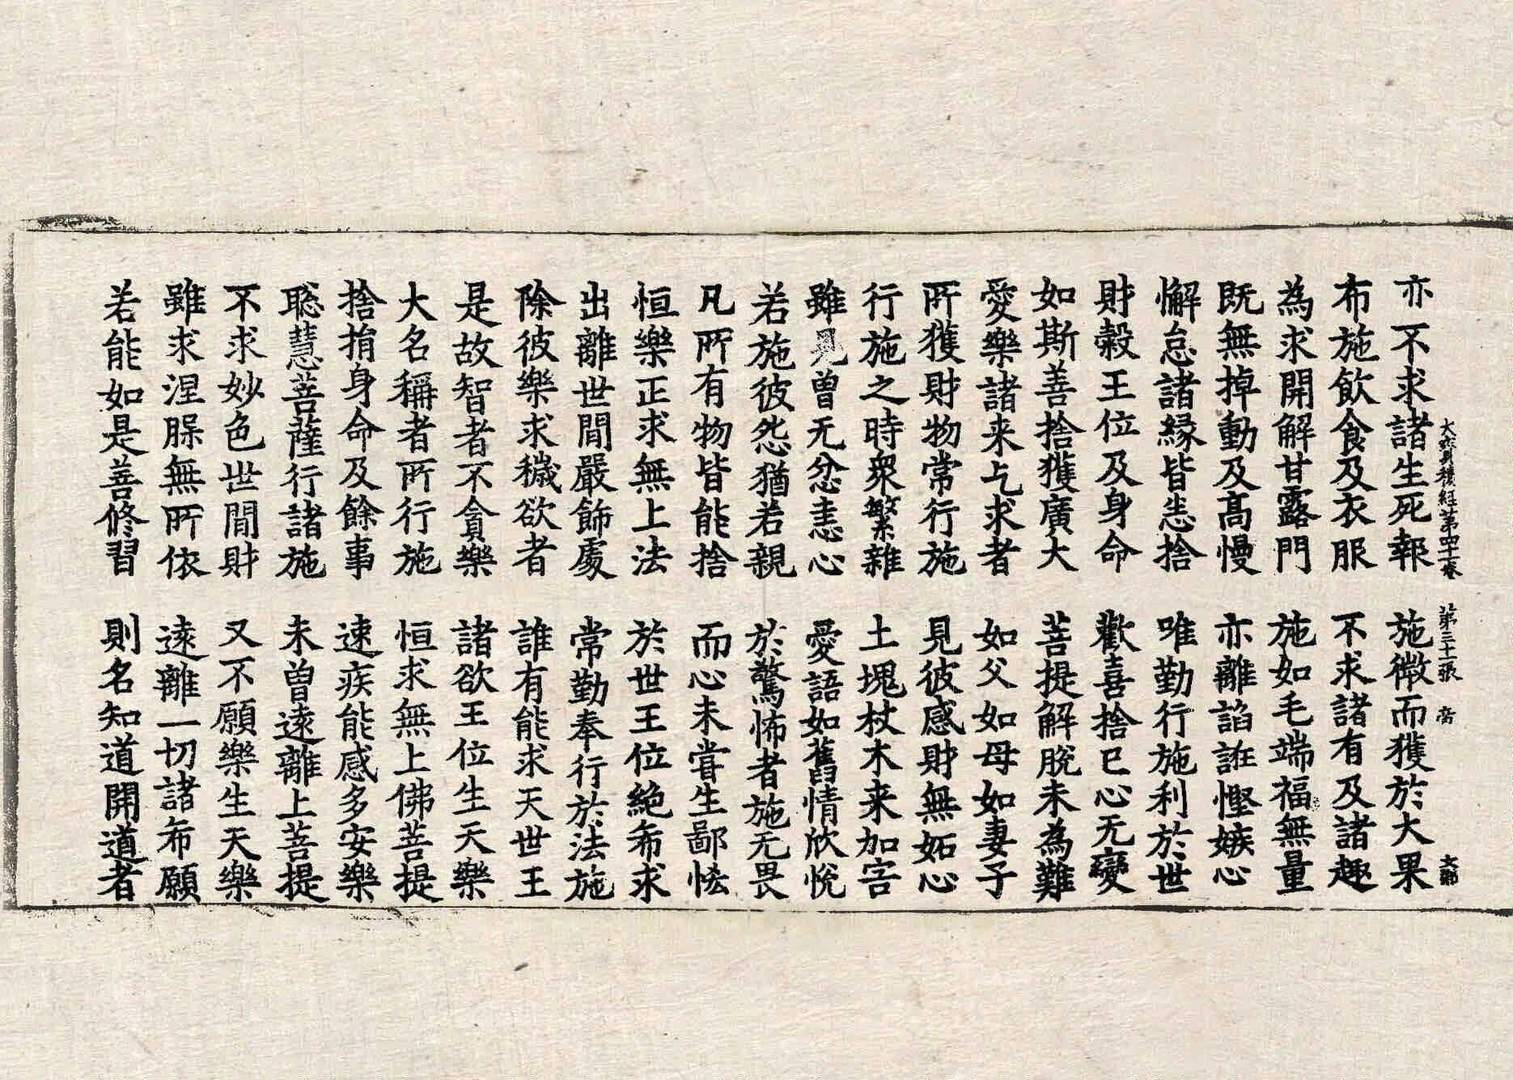 大寶積經第四十一卷 第三十一張 帝
亦不求諸生死報 施微而獲於大果
布施飲食及衣服 不求諸有及諸趣
為求開解甘露門 施如毛端福無量
既無掉動及高慢 亦離諂誑慳嫉心
懈怠諸緣皆悉捨 唯勤行施利於世
財穀王位及身命 歡喜捨已心无變
如斯善捨獲廣大 菩提解脫未為難
愛樂諸来乞求者 如父如母如妻子
所獲財物常行施 見彼感財無妬心
行施之時衆繁雜 土塊杖木来加害
雖見曾无忿恚心 愛語如舊情欣悅
若施彼怨猶若親 於驚怖者施无畏
凡所有物皆能捨 而心未甞生鄙悋
恒樂正求無上法 於世王位絶希求
出離世間嚴飾處 常勤奉行於法施
除彼樂求穢欲者 誰有能求天世王
是故智者不貪樂 諸欲王位生天樂
大名稱者所行施 恒求無上佛菩提
捨捐身命及餘事 速疾能感多安樂
聡慧菩薩行諸施 未曾遠離上菩提
不求妙色世間財 又不願樂生天樂
雖求涅槃無所依 遠離一切諸希願
若能如是善修習 則名知道開道者